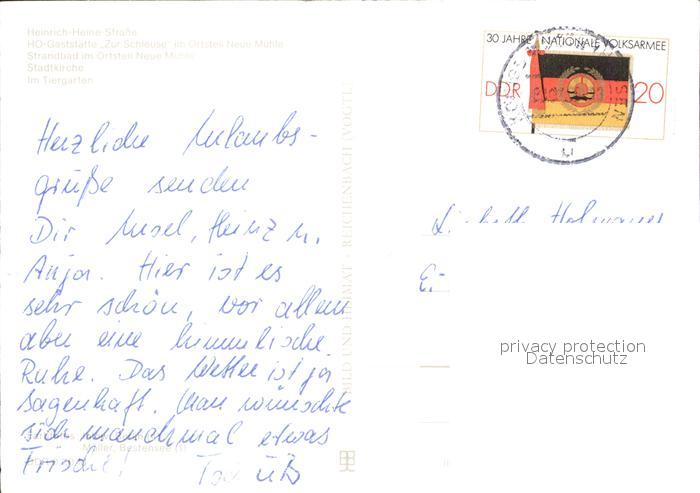 Heinrich-Heine-Straße
HO-Gaststätte „Zur Schleuse" im Ortsteil Neue Mühle
Strandbad im Ortsteil Neue Mühle
Stadtkirche
Im Tiergarten
30 JAHRE NATIONALE VOLKSARMEE
DDR 20
Herzliche Urlaubs-
grüße senden
Dir Ursel, Heinz u.
Anja. Hier ist es
sehr schön, vor allem
aber eine himmlische
Ruhe. Das Wetter ist ja
sagenhaft. Man wünschte
sich manchmal etwas
Frische!
Müller, Bestensee
BILD UND HEIMAT · REICHENBACH (VOGTL)
privacy protection
Datenschutz